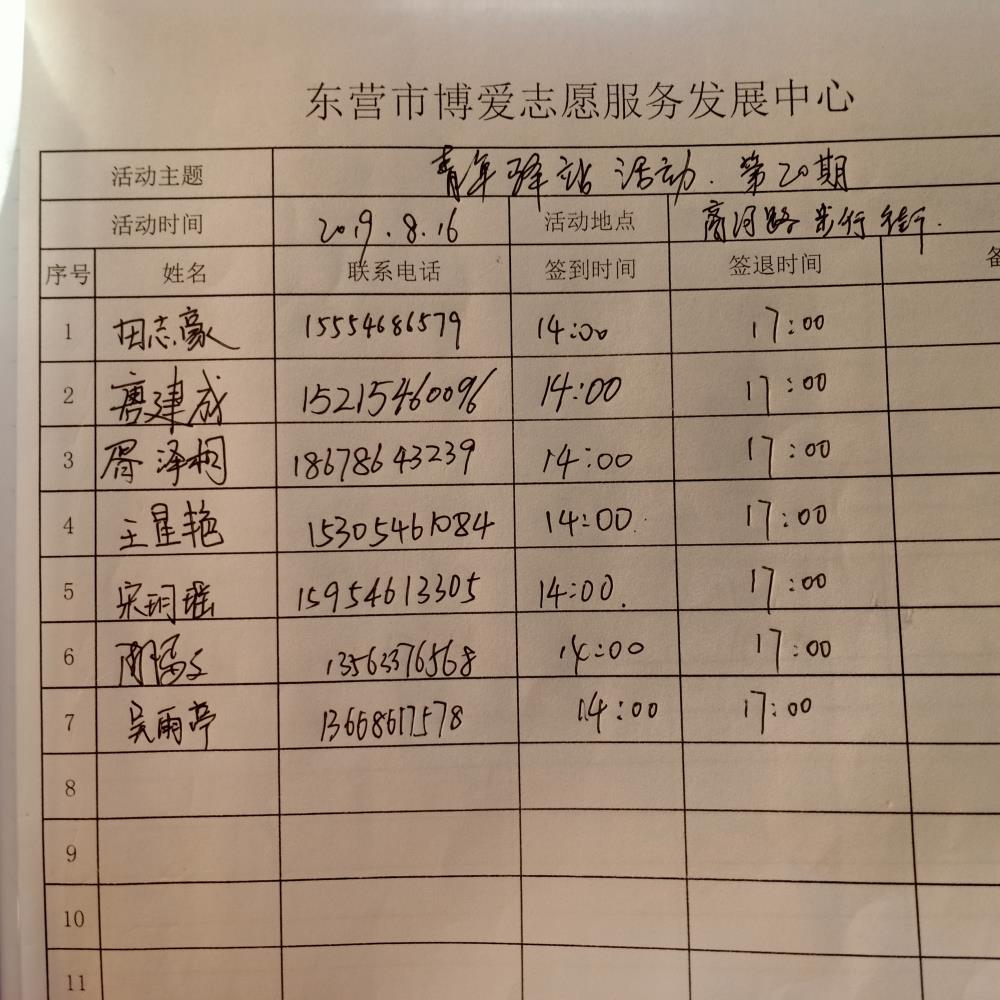 东营市博爱志愿服务发展中心
活动主题 青年驿站活动.第20期
活动时间 2019.8.16 活动地点 商河路步行街.
序号 姓名 联系电话 签到时间 签退时间 备
1 田志豪 15554686579 14:00 17:00
2 唐建成 15215460096 14:00 17:00
3 胥泽桐 18678643239 14:00 17:00
4 王星艳 15305461084 14:00. 17:00
5 宋玥瑶 15954613305 14:00. 17:00
6 13563376568 14:00 17:00
7 吴雨亭 13668617578 14:00 17:00
8
9
10
11